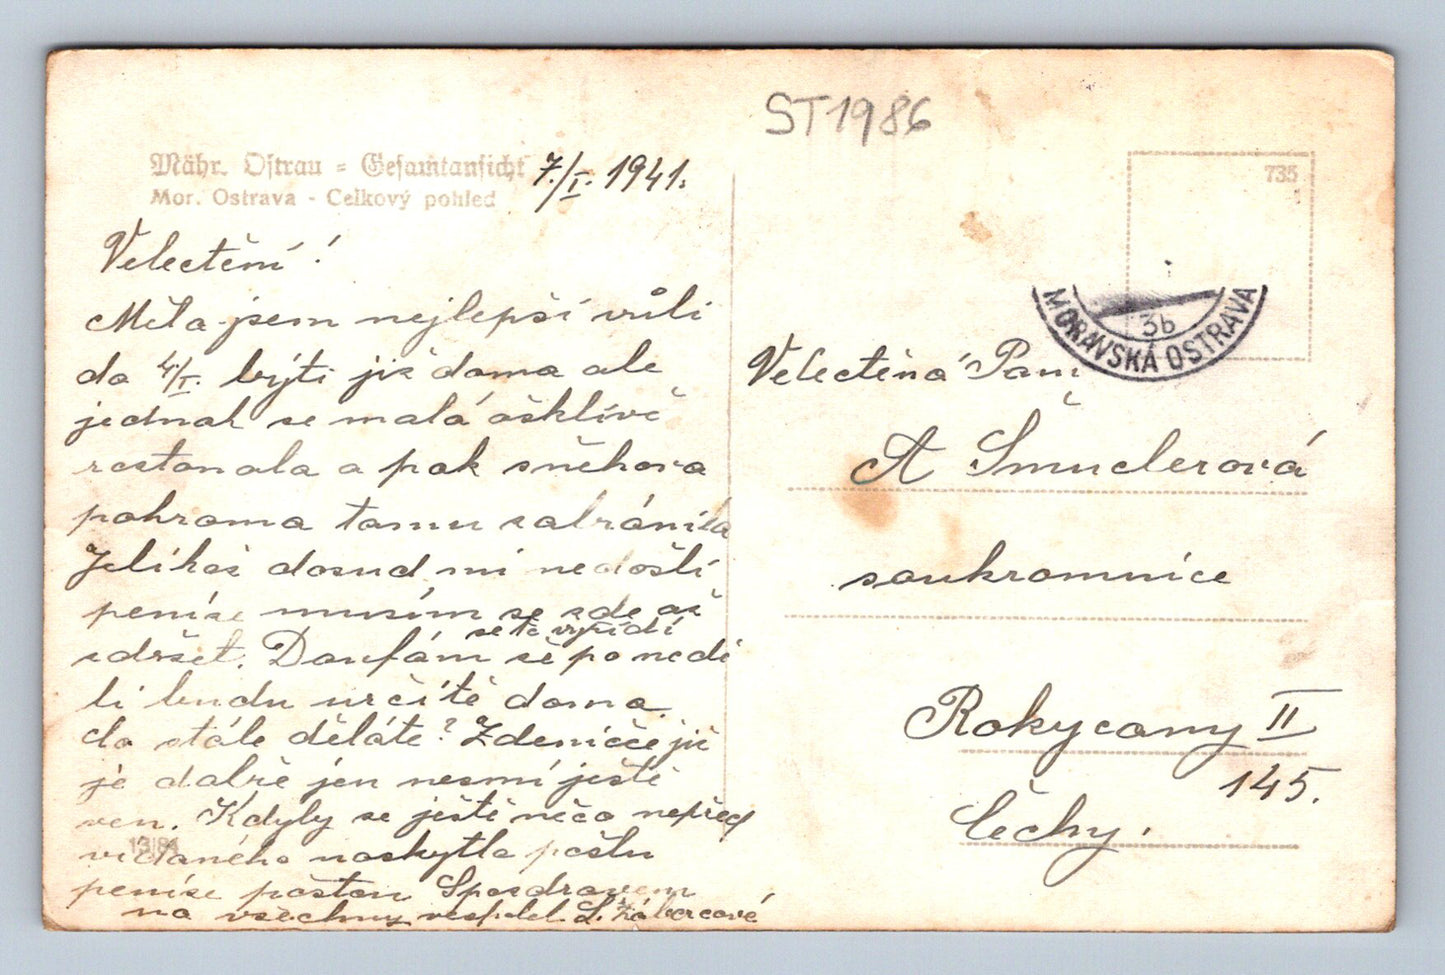 ST1986
Mähr. Ostrau = Gesamtansicht
Mor. Ostrava - Celkový pohled
7./I. 1941.
735
MORAVSKÁ OSTRAVA
3b
Velectění!
Měla jsem nejlepší vůli
do 4./I. býti již doma ale
jednak se malá ošklivě
rostonala a pak sněhova
pohroma tomu zabránila
Jelikož dosud mi nedošli
peníze musím se zde až
se to vyřídí
zdržet. Doufám že po nedě
li budu určitě doma.
Co stále děláte? Zdeničce již
je dobře jen nesmí ještě
ven. Kdyby se ještě něco nepřed
vídaného naskytlo pošlu
peníze poštou S pozdravem
na všechny
13/81
Velectěná Paní
A Šmuclerová
soukromnice
Rokycany II
145.
Čechy.